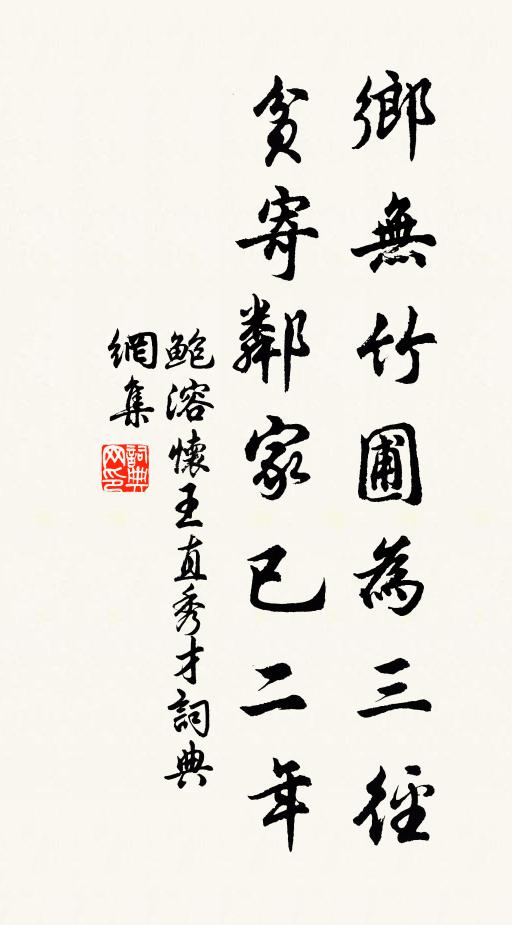 鄉無竹圃為三徑
貧寄鄰家已二年
鮑溶懷王直秀才詞典
網集
詞典網印